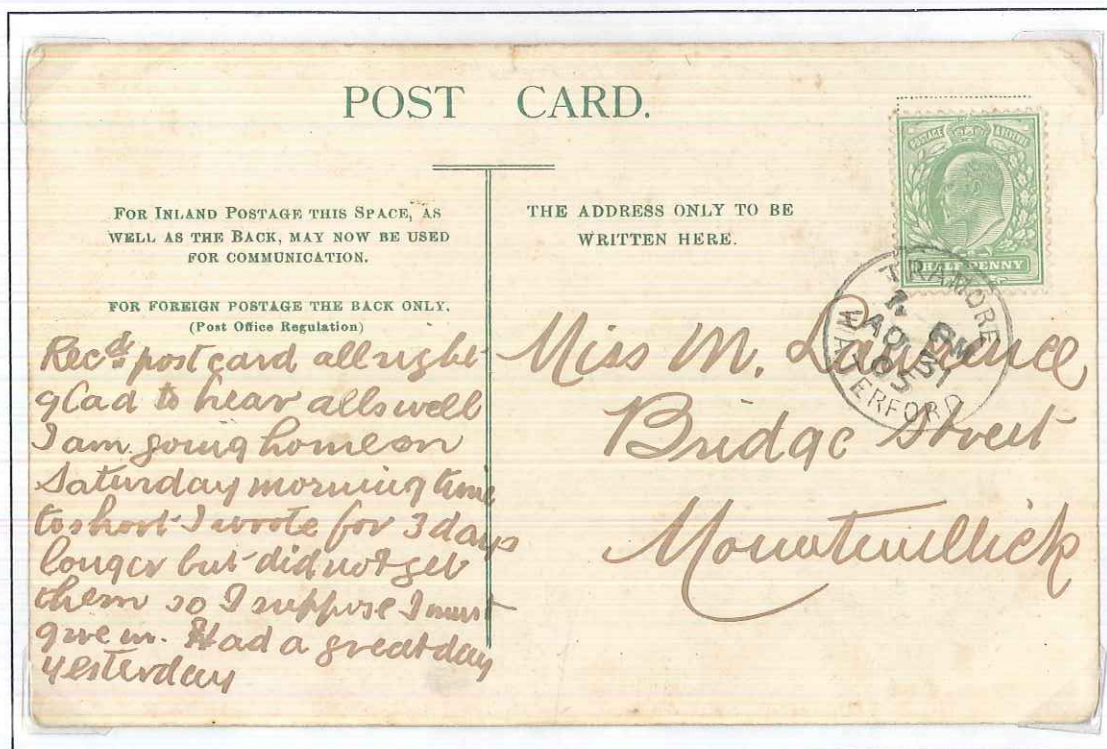 POST CARD.
FOR INLAND POSTAGE THIS SPACE, AS
WELL AS THE BACK, MAY NOW BE USED
FOR COMMUNICATION.
FOR FOREIGN POSTAGE THE BACK ONLY.
(Post Office Regulation)
Recd postcard all right
glad to hear alls well
I am going home on
Saturday morning time
to short I wrote for 3 days
longer but did not get
them so I suppose I must
give in. Had a great day
yesterday
THE ADDRESS ONLY TO BE
WRITTEN HERE.
POSTAGE
HALF PENNY
TRAMORE
AU 31
05
WATERFORD
Miss M. Laurence
Bridge Street
Mountmellick